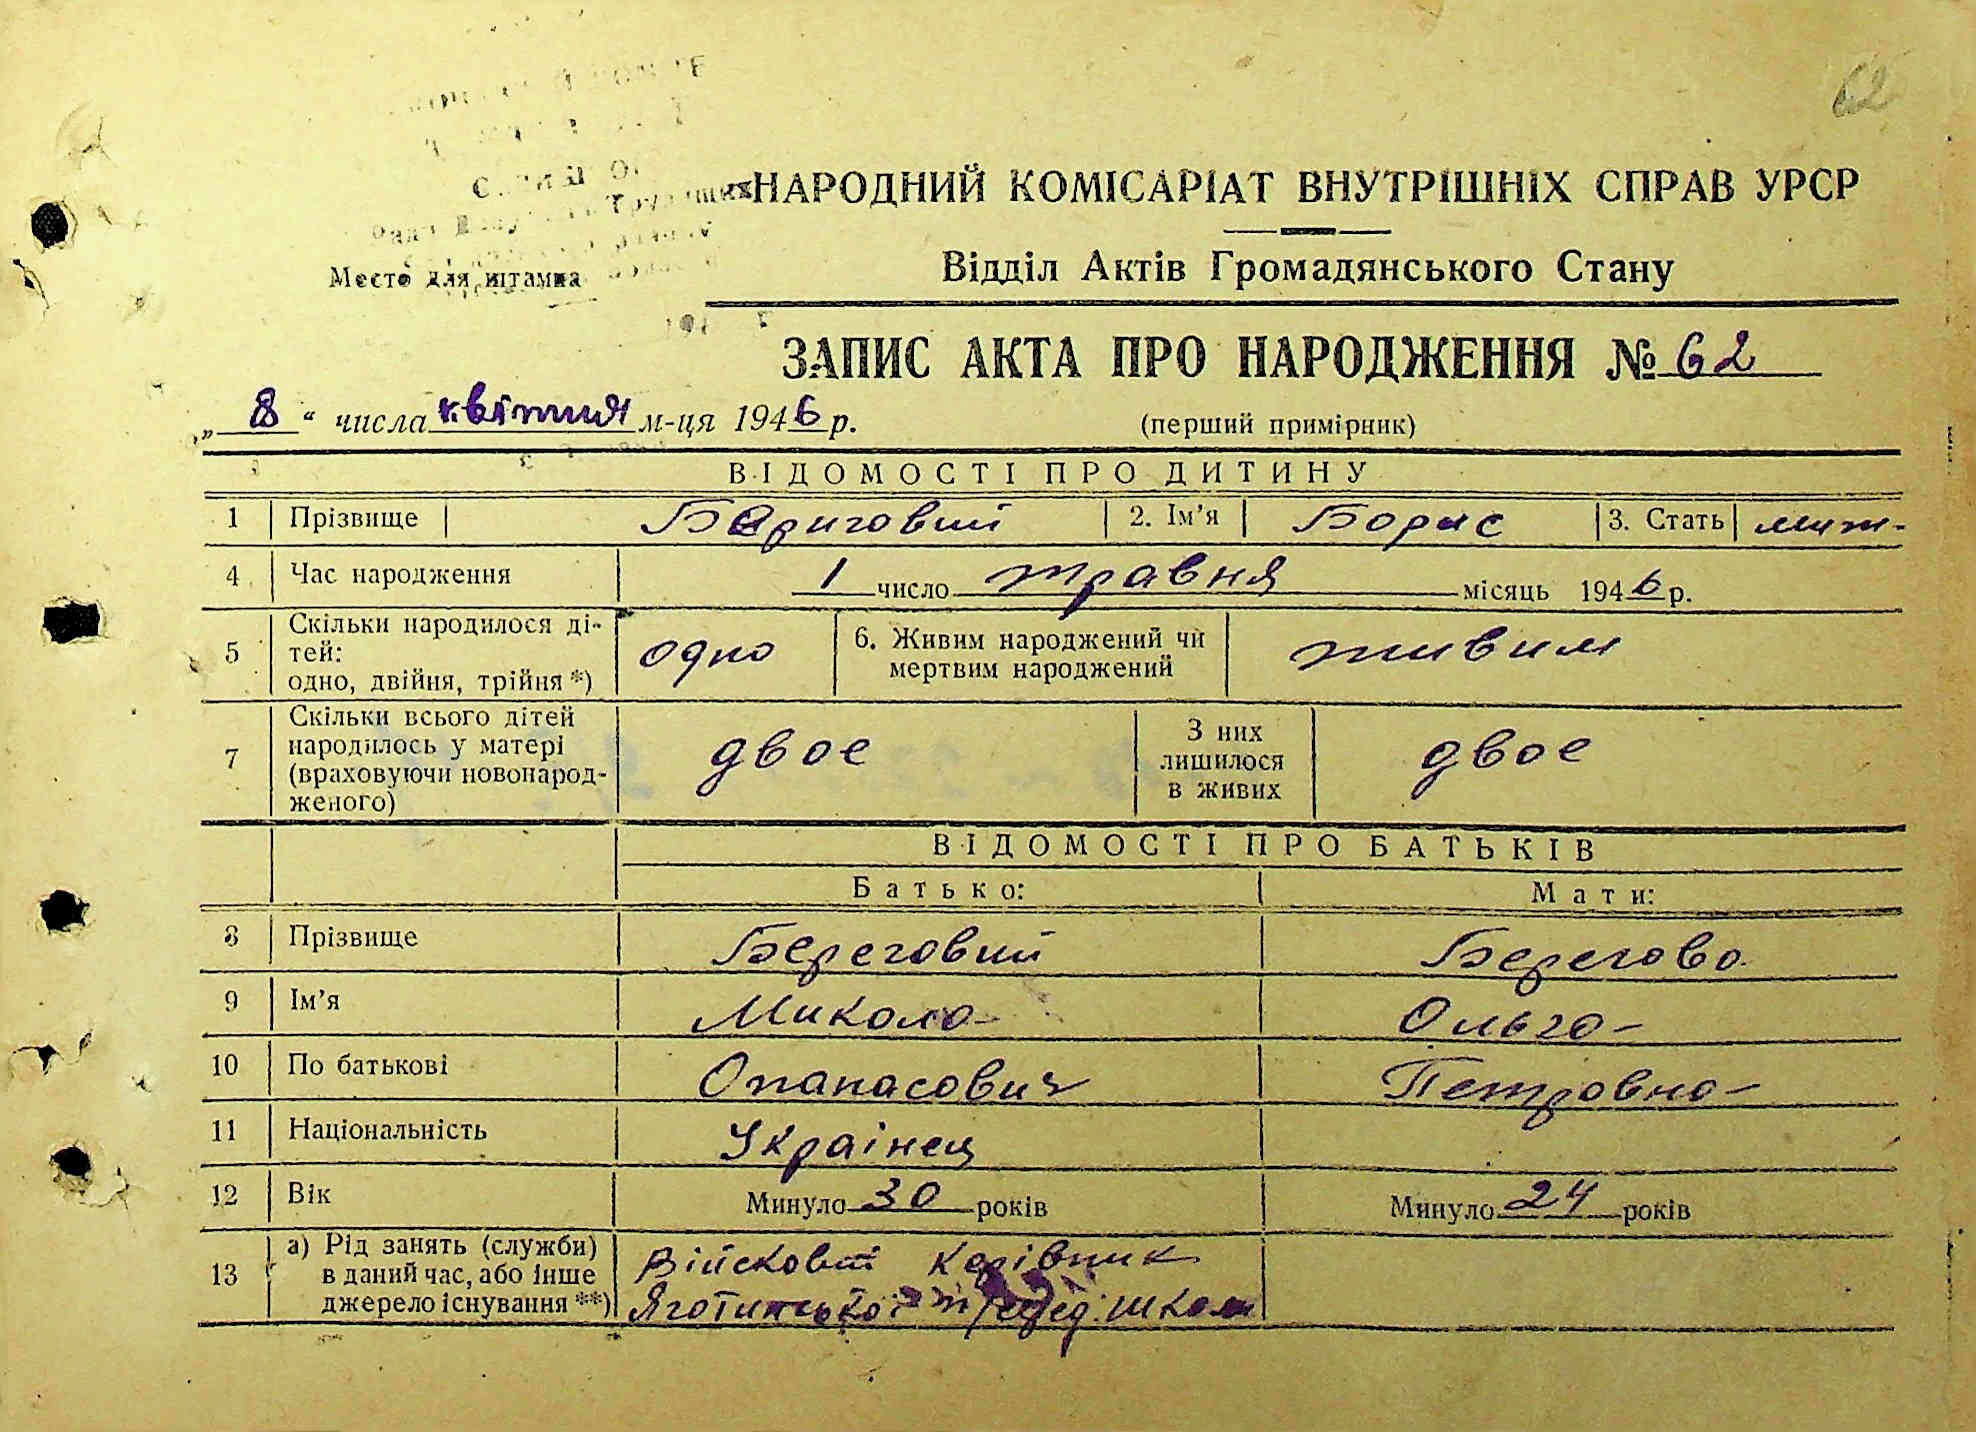 62
НАРОДНИЙ КОМІСАРІАТ ВНУТРІШНІХ СПРАВ УРСР
Відділ Актів Громадянського Стану
Место для штампа
ЗАПИС АКТА ПРО НАРОДЖЕННЯ № 62
„ 8 “ числа квітня м-ця 1946 р. (перший примірник)
ВІДОМОСТІ ПРО ДИТИНУ
1 Прізвище Бериговий 2. Ім’я Борис 3. Стать муж-
4 Час народження 1 число травня місяць 1946 р.
5 Скільки народилося ді-
тей:
одно, двійня, трійня *) одно 6. Живим народжений чи
мертвим народжений живим
7 Скільки всього дітей
народилось у матері
(враховуючи новонарод-
женого) двое З них
лишилося
в живих двое
ВІДОМОСТІ ПРО БАТЬКІВ
Батько: Мати:
8 Прізвище Береговий Берегова
9 Ім’я Микола Ольга
10 По батькові Опанасович Петровна
11 Національність Українец
12 Вік Минуло 30 років Минуло 24 років
13 а) Рід занять (служби)
в даний час, або інше
джерело існування **) Військовий керівник
Яготинської школи